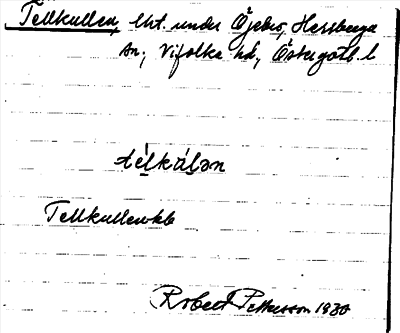 Tellkullen, lht. under Öjebro, Herrberga
sn, Vifolka hd, Östergötl. l
télkálən
Tellkullen
Robert Pettersson 1930